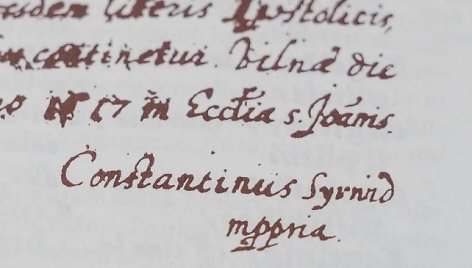 literis Apostolicis,
continetur. Vilnæ die
in Ecctia s. Joānis.
Constantinus Syrvid
mppria.